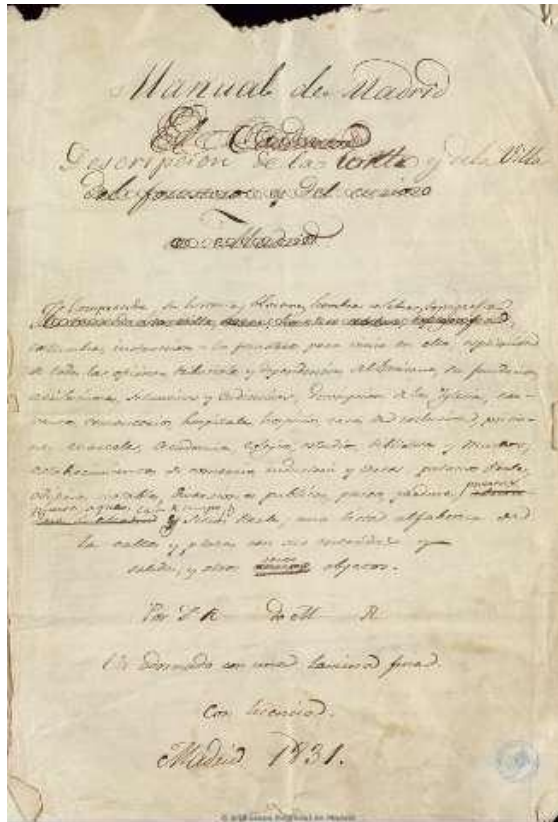 Manual de Madrid
El
Descripcion de la Corte y de la Villa
del forastero y del curioso
en Madrid
Comprende, su historia, hombres celebres, topografia
costumbres, instruccion a los forasteros para vivir en ella, explicacion
de todas las oficinas, tribunales y dependencias del Gobierno, su fundacion,
atribuciones, situacion y descripcion de las Iglesias, con-
ventos, hospitales, hospicios, casas de reclusion, prisio-
nes, cuarteles, Academias, colegios, estudios, bibliotecas y Museos,
establecimientos de comercio industria y palacios Reales,
objetos notables, Diversiones publicas, paseos, jardines,
casa de campo
y sitios Reales, una lista alfabetica de
las calles y plazas con sus entradas y
salidas, y otros varios objetos.
Por D. R de M R
Va adornado con una lamina fina.
Con licencia.
Madrid 1831.